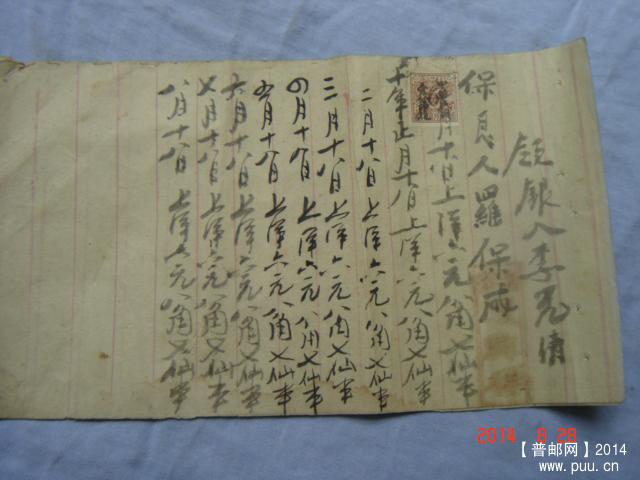 領銀人李
保息人羅保成
月十八日上洋六元八角七仙半
十年正月十八日上洋六元八角七仙半
二月十八日上洋六元八角七仙半
三月十八日上洋六元八角七仙半
四月十八日上洋六元八角七仙半
五月十八日上洋六元八角七仙半
六月十八日上洋六元八角七仙半
七月十八日上洋六元八角七仙半
八月十八日上洋六元八角七仙半
2014 8 28
【普邮网】2014
www.puu.cn